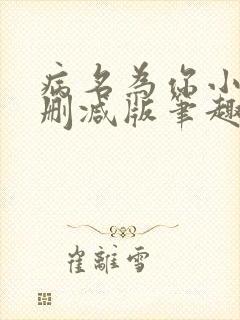 病名为你小
删减版笔趣
崔離雪